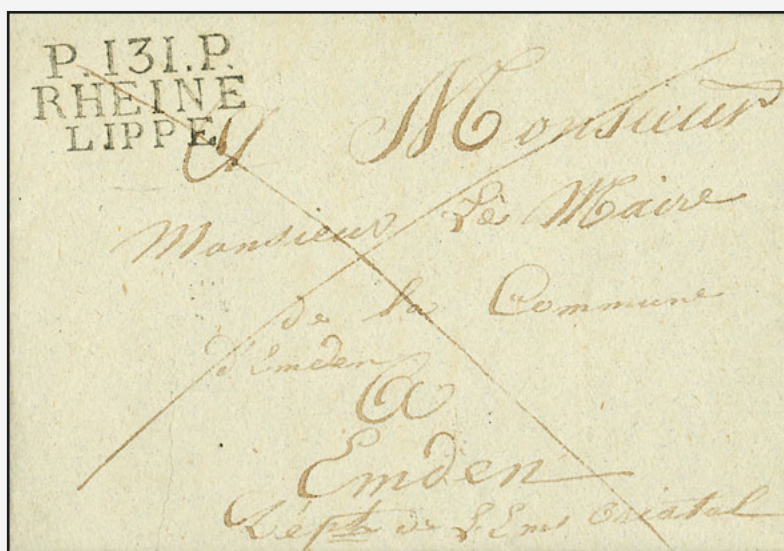 P.131.P.
RHEINE
LIPPE
A Monsieur
Monsieur Le Maire
de la Commune
d'Emden
A
Emden
Dept de L'Ems Oriental